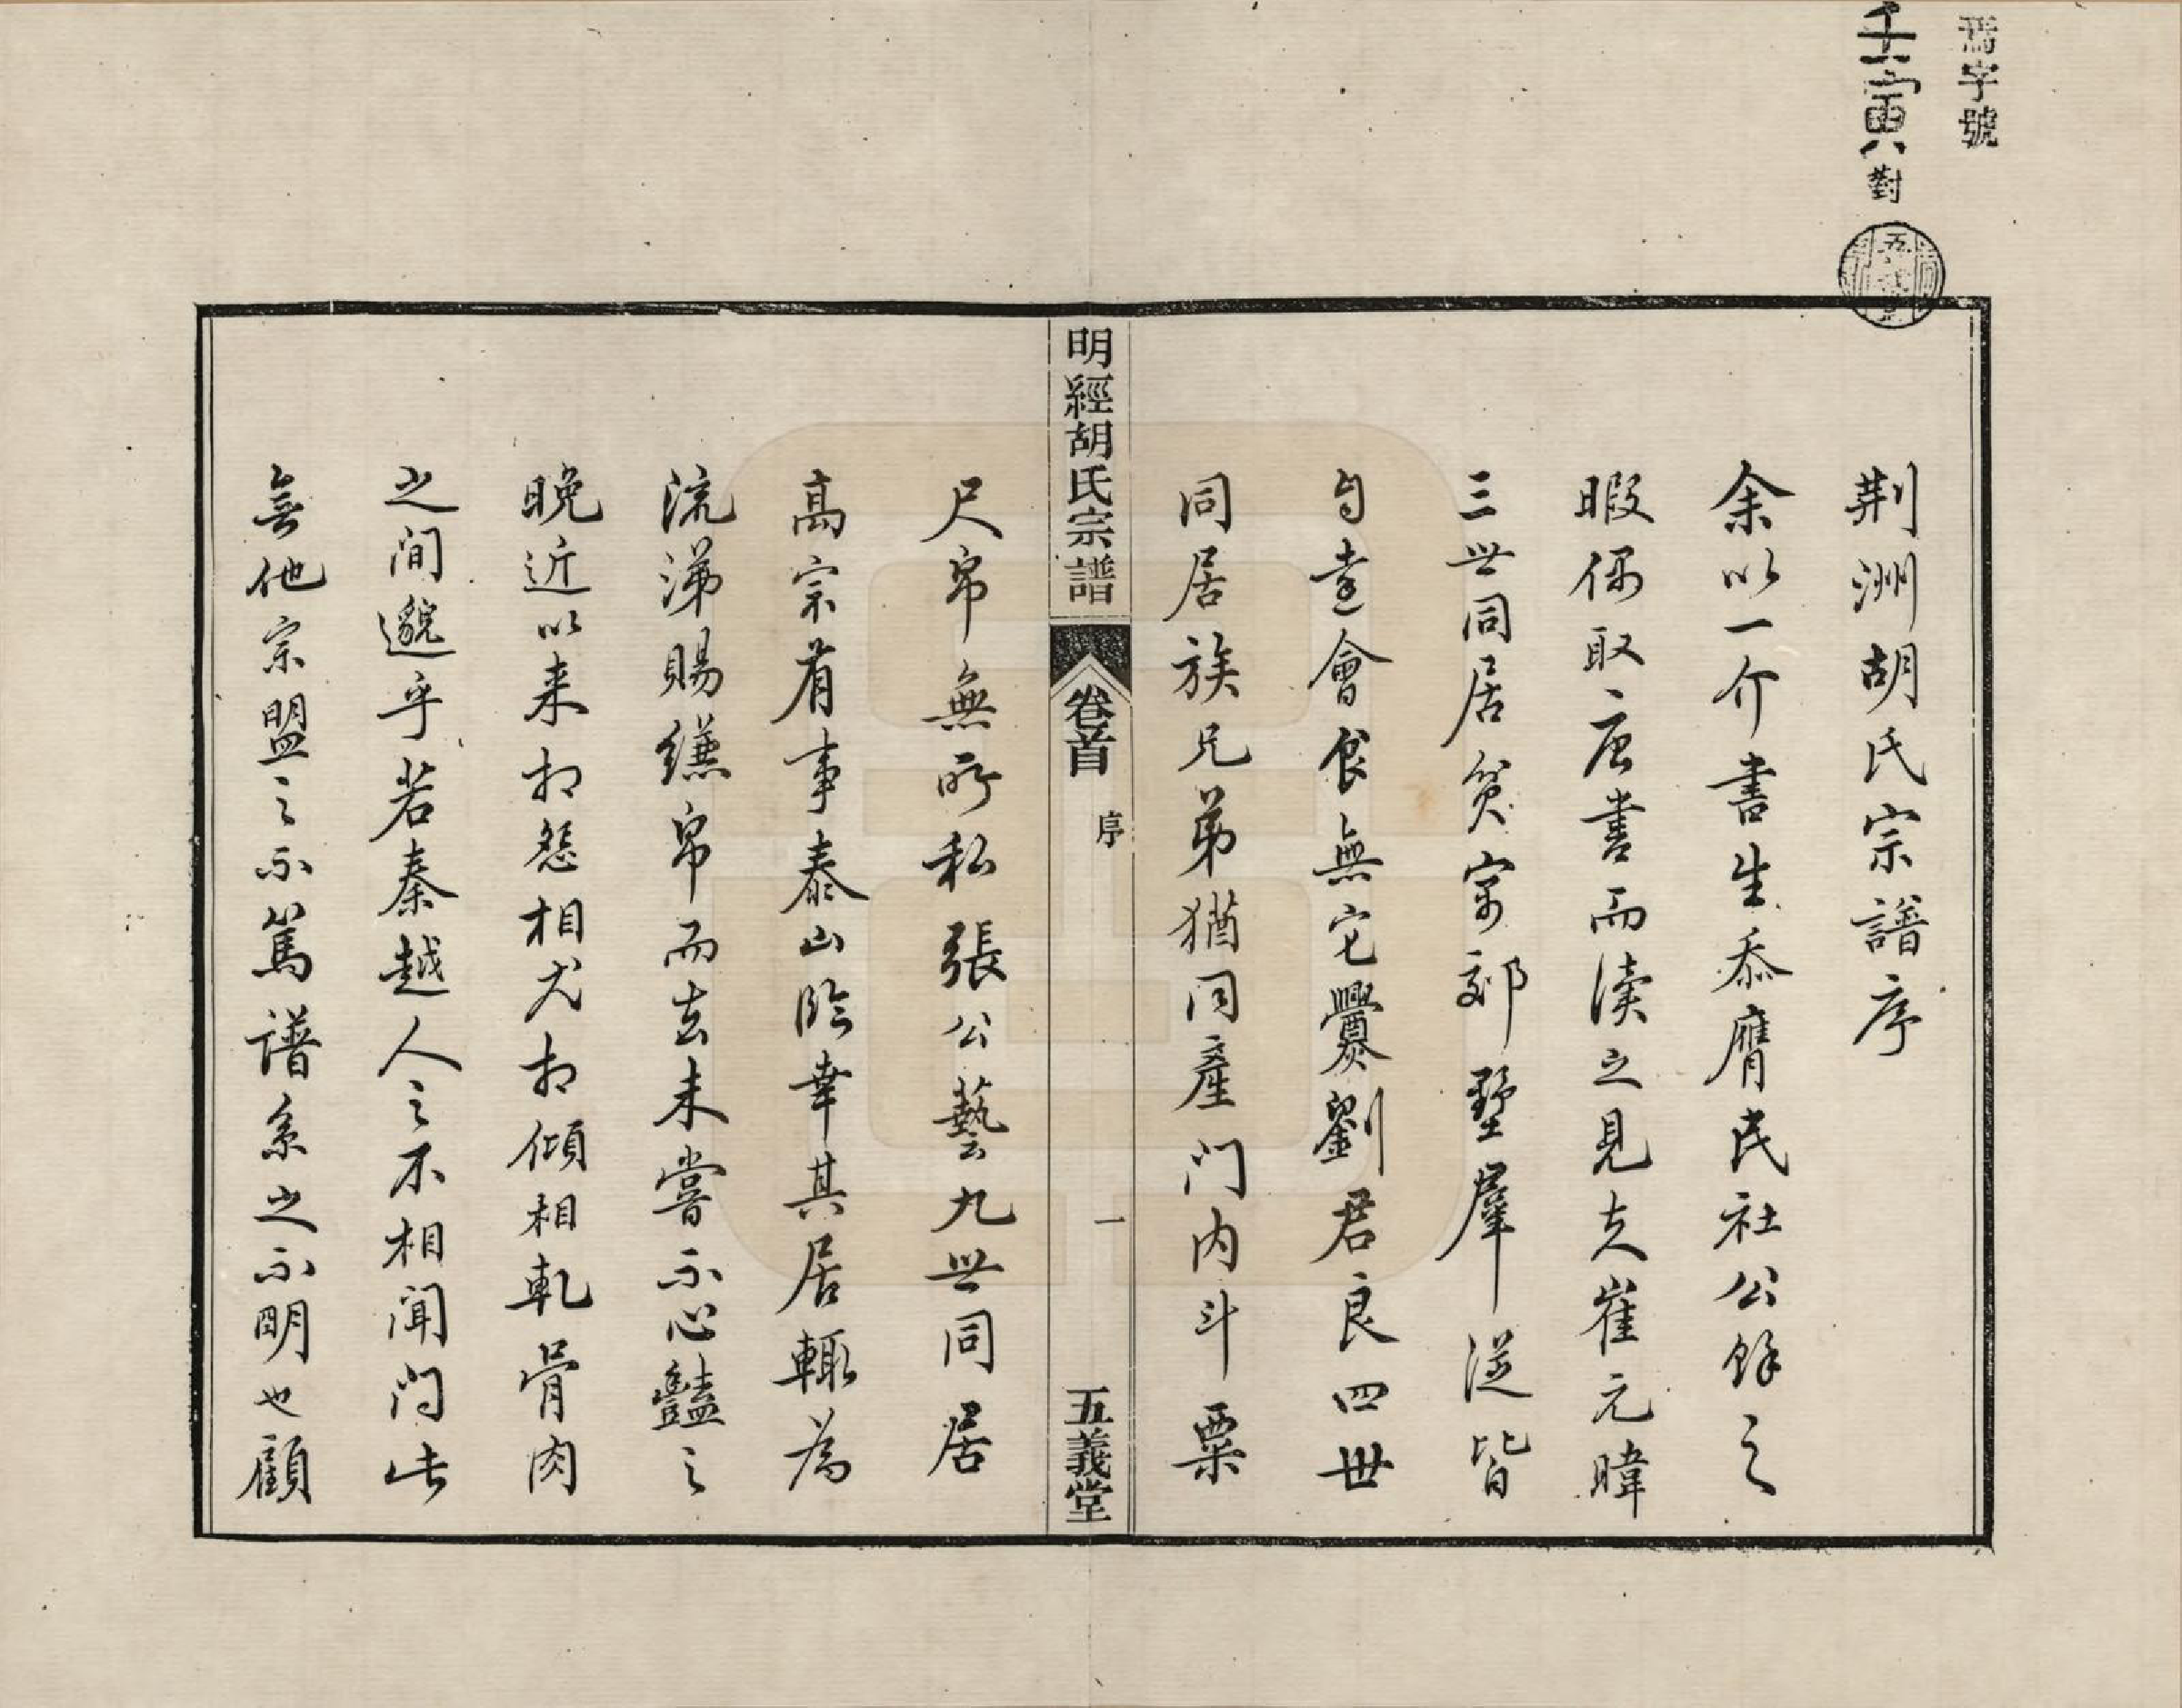 字號
壬寅對
荆洲胡氏宗譜序
余以一介書生忝膺民社公餘之
暇偶取唐書而讀之見夫崔元暐
三世同居貧寓郊墅羣從皆
自遠會食無它爨劉君良四世
同居族兄弟猶同產门内斗粟
明經胡氏宗譜
卷首
序
一
五義堂
尺帛無所私張公藝九世同居
高宗有事泰山臨幸其居輒為
流涕賜縑帛而去未嘗不心豔之
晚近以来相怨相尤相傾相軋骨肉
之间邈乎若秦越人之不相聞问此
無他宗盟之不篤譜系之不明也顧